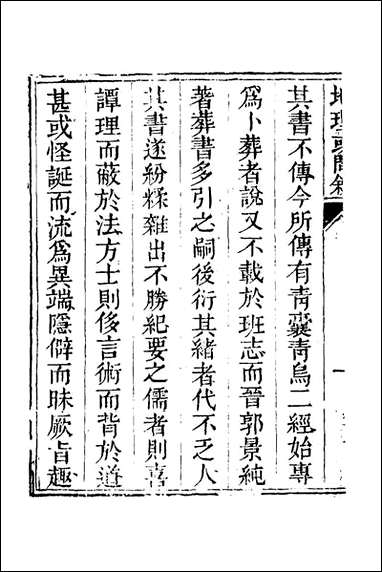 地理或問敘
其書不傳今所傳有青囊青烏二經始專
爲卜葬者說又不載於班志而晉郭景純
著葬書多引之嗣後衍其緒者代不乏人
其書遂紛糅雜出不勝紀要之儒者則喜
譚理而蔽於法方士則侈言術而背於道
甚或怪誕而流爲異端隱僻而昧厥旨趣